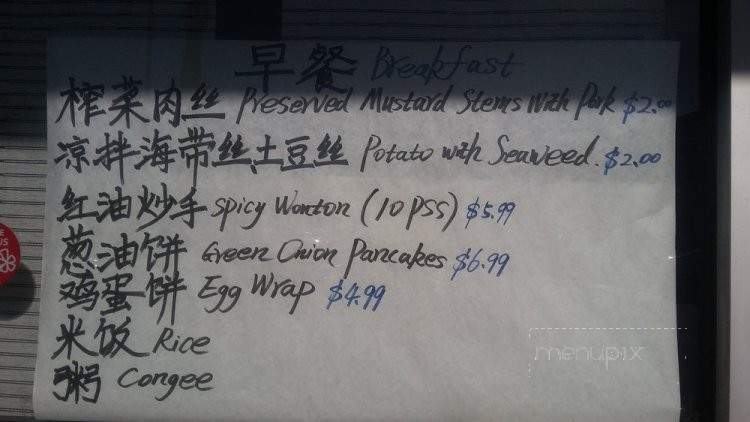 早餐 Breakfast
榨菜肉丝 Preserved Mustard Stems with Pork $2.00
凉拌海带丝、土豆丝 Potato with Seaweed. $2.00
红油炒手 Spicy Wonton (10 PSS) $5.99
葱油饼 Green Onion Pancakes $6.99
鸡蛋饼 Egg Wrap $4.99
米饭 Rice
粥 Congee
menupix